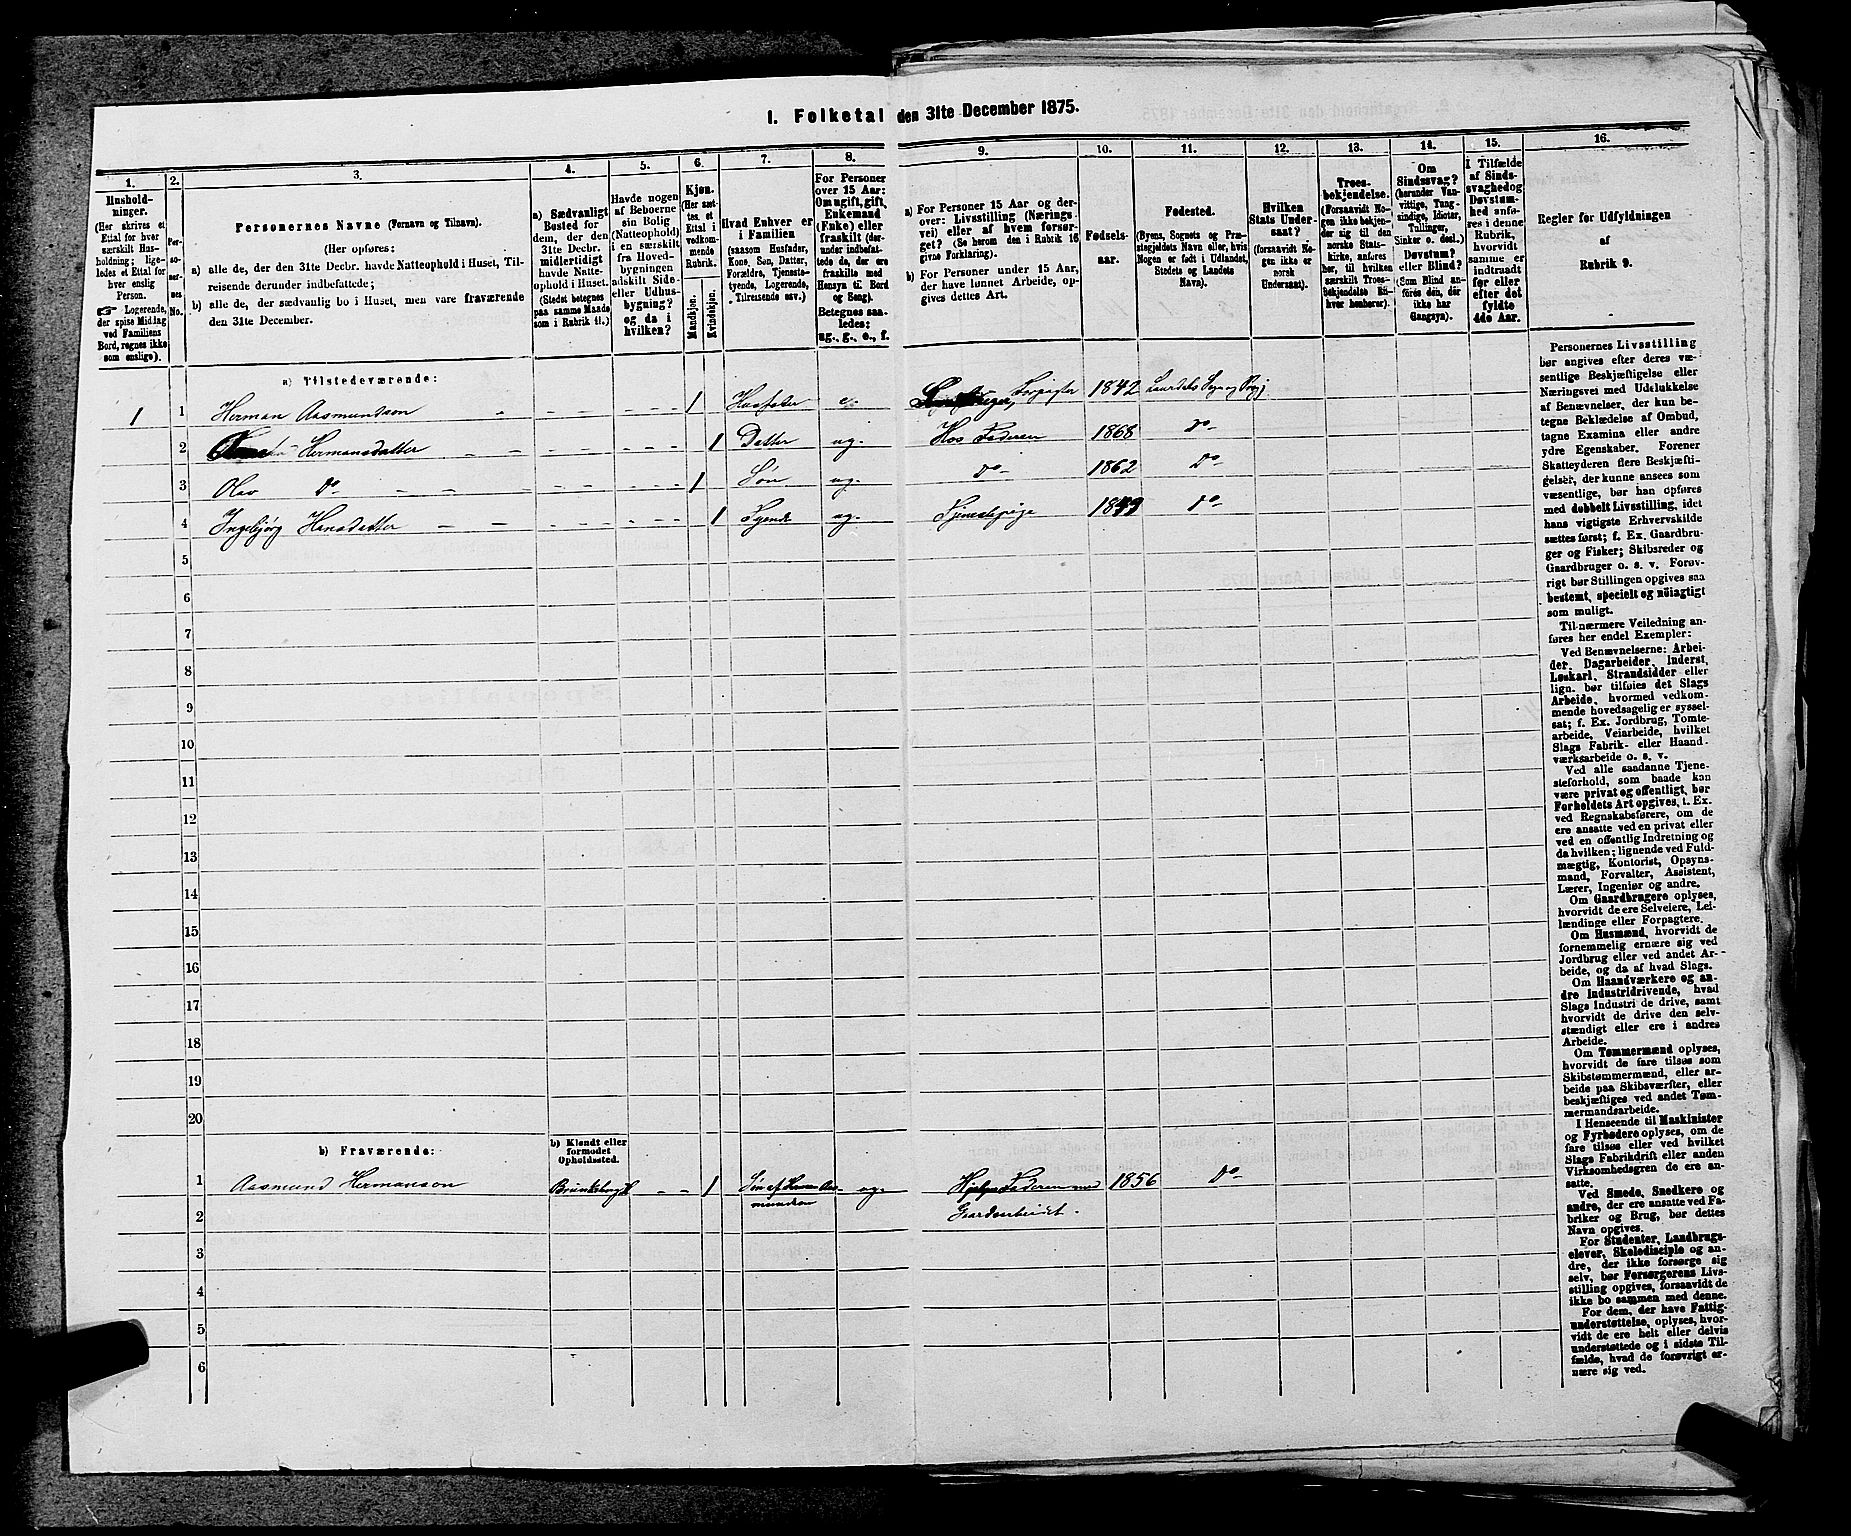 I. Folketal den 31te December 1875.
1.
Hushold-
ninger.
(Her skrives et
Ettal for hver
særskilt Hus-
holdning; lige-
ledes et Ettal for
hver enslig
Person.
☞ Logerende,
der spise Middag
ved Familiens
Bord, regnes ikke
som enslige).
2.
Per-
so-
ner-
nes
No.
3.
Personernes Navne (Fornavn og Tilnavn).
(Her opføres:
a) alle de, der den 31te Decbr. havde Natteophold i Huset, Til-
reisende derunder indbefattede;
b) alle de, der sædvanlig bo i Huset, men vare fraværende
den 31te December.
4.
a) Sædvanligt
Bosted for
dem, der den
31te Decbr.
midlertidigt
havde Natte-
ophold i Huset.
(Stedet betegnes
paa samme Maade
som i Rubrik 11.)
5.
Havde nogen
af Beboerne
sin Bolig
(Natteophold)
i en særskilt
fra Hoved-
bygningen
adskilt Side-
eller Udhus-
bygning?
og da i
hvilken?
6.
Kjøn.
(Her sæt-
tes et
Ettal i
vedkom-
mende
Rubrik.
Mandkjøn.
Kvindekjøn.
7.
Hvad Enhver er
i Familien
(saasom Husfader,
Kone, Søn, Datter,
Forældre, Tjeneste-
tyende, Logerende,
Tilreisende osv.)
8.
For Personer
over 15 Aar:
Om ugift, gift,
Enkemand
(Enke) eller
fraskilt (der-
under indbefat-
tede de, der ere
fraskilte med
Hensyn til Bord
og Seng).
Betegnes saa-
ledes:
ug., g., e., f.
9.
a) For Personer 15 Aar og der-
over: Livsstilling (Nærings-
vei) eller af hvem forsør-
get? (Se herom den i Rubrik 16
givne Forklaring).
b) For Personer under 15 Aar,
der have lønnet Arbeide, op-
gives dettes Art.
10.
Fødsels-
aar.
11.
Fødested.
(Byens, Sognets og Præ-
stegjeldets Navn eller, hvis
Nogen er født i Udlandet,
Stedets og Landets
Navn).
12.
Hvilken
Stats Under-
saat?
(forsaavidt No-
gen ikke er
norsk
Undersaat).
13.
Troes-
bekjendelse.
(Forsaavidt No-
gen ikke bekjen-
der sig til den
norske Stats-
kirke, anføres
her, til hvilken
særskilt Troes-
Bekjendelse En-
hver henhører).
14.
Om
Sindssvag?
(herunder Van-
vittige, Tung-
sindige, Idioter,
Tullinger,
Sinker o. desl.)
Døvstum?
eller Blind?
(Som Blind an-
føres den, der
ikke har
Gangsyn).
15.
I Tilfælde
af Sinds-
svaghed og
Døvstum-
hed anfø-
res i denne
Rubrik,
hvorvidt
samme er
indtraadt
før eller
efter det
fyldte
4de Aar.
16.
Regler før Udfyldningen
af
Rubrik 9.
a) Tilstedeværende:
1 1 Herman Aasmundson - - - - - - 1 Husfader e. Forpagter 1842 Laurdals Sogn og Prgj
2 Hermansdatter - - - - - - 1 Datter ug. Hos Faderen 1868 do
3 Olav Do - - - - - - 1 Søn ug. Do 1862 Do
4 Ingebjørg Hansdatter - - - - - - 1 Tyende ug. Tjenestepige Do
5
6
7
8
9
10
11
12
13
14
15
16
17
18
19
20
b) Fraværende:
b) Kjendt eller
formodet
Opholdssted.
1 Aasmund Hermanson Brunkeberg - - 1 Søn af Herman Aas-
mundson ug. Hjelper Faderen med 1856 Do
2 Gaardsarbeidet.
3
4
5
6
Personernes Livsstilling
bør angives efter deres væ-
sentlige Beskjæftigelse eller
Næringsvei med Udelukkelse
af Benævnelser, der kun be-
tegne Beklædelse af Ombud,
tagne Examina eller andre
ydre Egenskaber. Forener
Skatteyderen flere Beskjæfti-
gelser, der kunne ansees som
væsentlige, bør han opføres
med dobbelt Livsstilling, idet
hans vigtigste Erhvervskilde
sættes først; f. Ex. Gaardbru-
ger og Fisker; Skibsreder og
Gaardbruger o. s. v. Forøv-
rigt bør Stillingen opgives saa
bestemt, specielt og nøiagtigt
som muligt.
Til nærmere Veiledning an-
føres her endel Exempler:
Ved Benævnelserne: Arbei-
der, Dagarbeider, Inderst,
Løskarl, Strandsidder eller
lign. bør tilføies det Slags
Arbeide, hvormed vedkom-
mende hovedsagelig er syssel-
sat; f. Ex. Jordbrug, Tomte-
arbeide, Veiarbeide, hvilket
Slags Fabrik- eller Haand-
værksarbeide o. s. v.
Ved alle saadanne Tjene-
steforhold, som baade kan
være privat og offentligt, bør
Forholdets Art opgives, t. Ex.
ved Regnskabsførere, om de
ere ansatte ved en privat eller
ved en offentlig Indretning og
da hvilken; lignende ved Fuld-
mægtig, Kontorist, Opsyns-
mand, Forvalter, Assistent,
Lærer, Ingeniør og andre.
Om Gaardbrugere oplyses,
hvorvidt de ere Selveiere, Lei-
lændinge eller Forpagtere.
Om Husmænd, hvorvidt de
fornemmelig ernære sig ved
Jordbrug eller ved andet Ar-
beide, og da af hvad Slags.
Om Haandværkere og an-
dre Industridrivende, hvad
Slags Industri de drive, samt
hvorvidt de drive den selv-
stændigt eller ere i andres
Arbeide.
Om Tømmermænd oplyses,
hvorvidt de fare tilsøs som
Skibstømmermænd, eller ar-
beide paa Skibsværfter, eller
beskjæftiges ved andet Tøm-
mermandsarbeide.
I Henseende til Maskinister
og Fyrbødere oplyses, om de
fare tilsøs eller ved hvilket
Slags Fabrikdrift eller anden
Virksomhedsgren de ere an-
satte.
Ved Smede, Snedkere og
andre, der ere ansatte ved Fa-
briker og Brug, bør dettes
Navn opgives.
For Studenter, Landbrugs-
elever, Skoledisciple og an-
dre, der ikke forsørge sig
selv, bør Forsørgerens Livs-
stilling opgives, forsaavidt de
ikke bo sammen med denne.
For dem, der have Fattig-
understøttelse, oplyses, hvor-
vidt de ere helt eller delvis
understøttede og i sidste Til-
fælde, hvad de forøvrigt er-
nære sig ved.